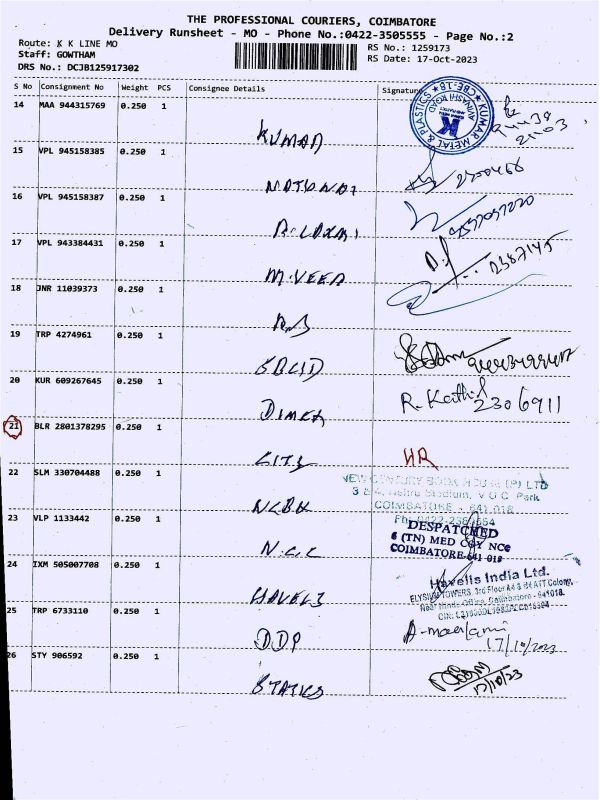 THE PROFESSIONAL COURIERS, COIMBATORE
Delivery Runsheet - MO - Phone No.:0422-3505555 - Page No.:2
Route: K K LINE MO
Staff: GOWTHAM
DRS No.: DCJB125917302
RS No.: 1259173
RS Date: 17-Oct-2023
S No Consignment No Weight PCS Consignee Details Signature
14 MAA 944315769 0.250 1
KUMAR
KUMAR METAL & PLASTICS CBE-18
15 VPL 945158385 0.250 1
NATIONAL
16 VPL 945158387 0.250 1
R. LAXMI
17 VPL 943384431 0.250 1
M. VEER
2387145
18 JNR 11039373 0.250 1
19 TRP 4274961 0.250 1
20 KUR 609267645 0.250 1
DIMEX
R. Kathi
2306911
21 BLR 2801378295 0.250 1
CITY
HR
22 SLM 330704488 0.250 1
NCBH
NEW CENTURY BOOK HOUSE (P) LTD
Nehru Stadium, V O C Park
COIMBATORE - 641 018
23 VLP 1133442 0.250 1
N.C.C
DESPATCHED
6 (TN) MED COY NCC
COIMBATORE-641 018
24 IXM 505007708 0.250 1
HAVELS
Havells India Ltd.
ELYSIUM TOWERS, 3rd Floor
Coimbatore - 641018.
25 TRP 6733110 0.250 1
DDP
17/10/2023
26 STY 906592 0.250 1
STATICS
17/10/23